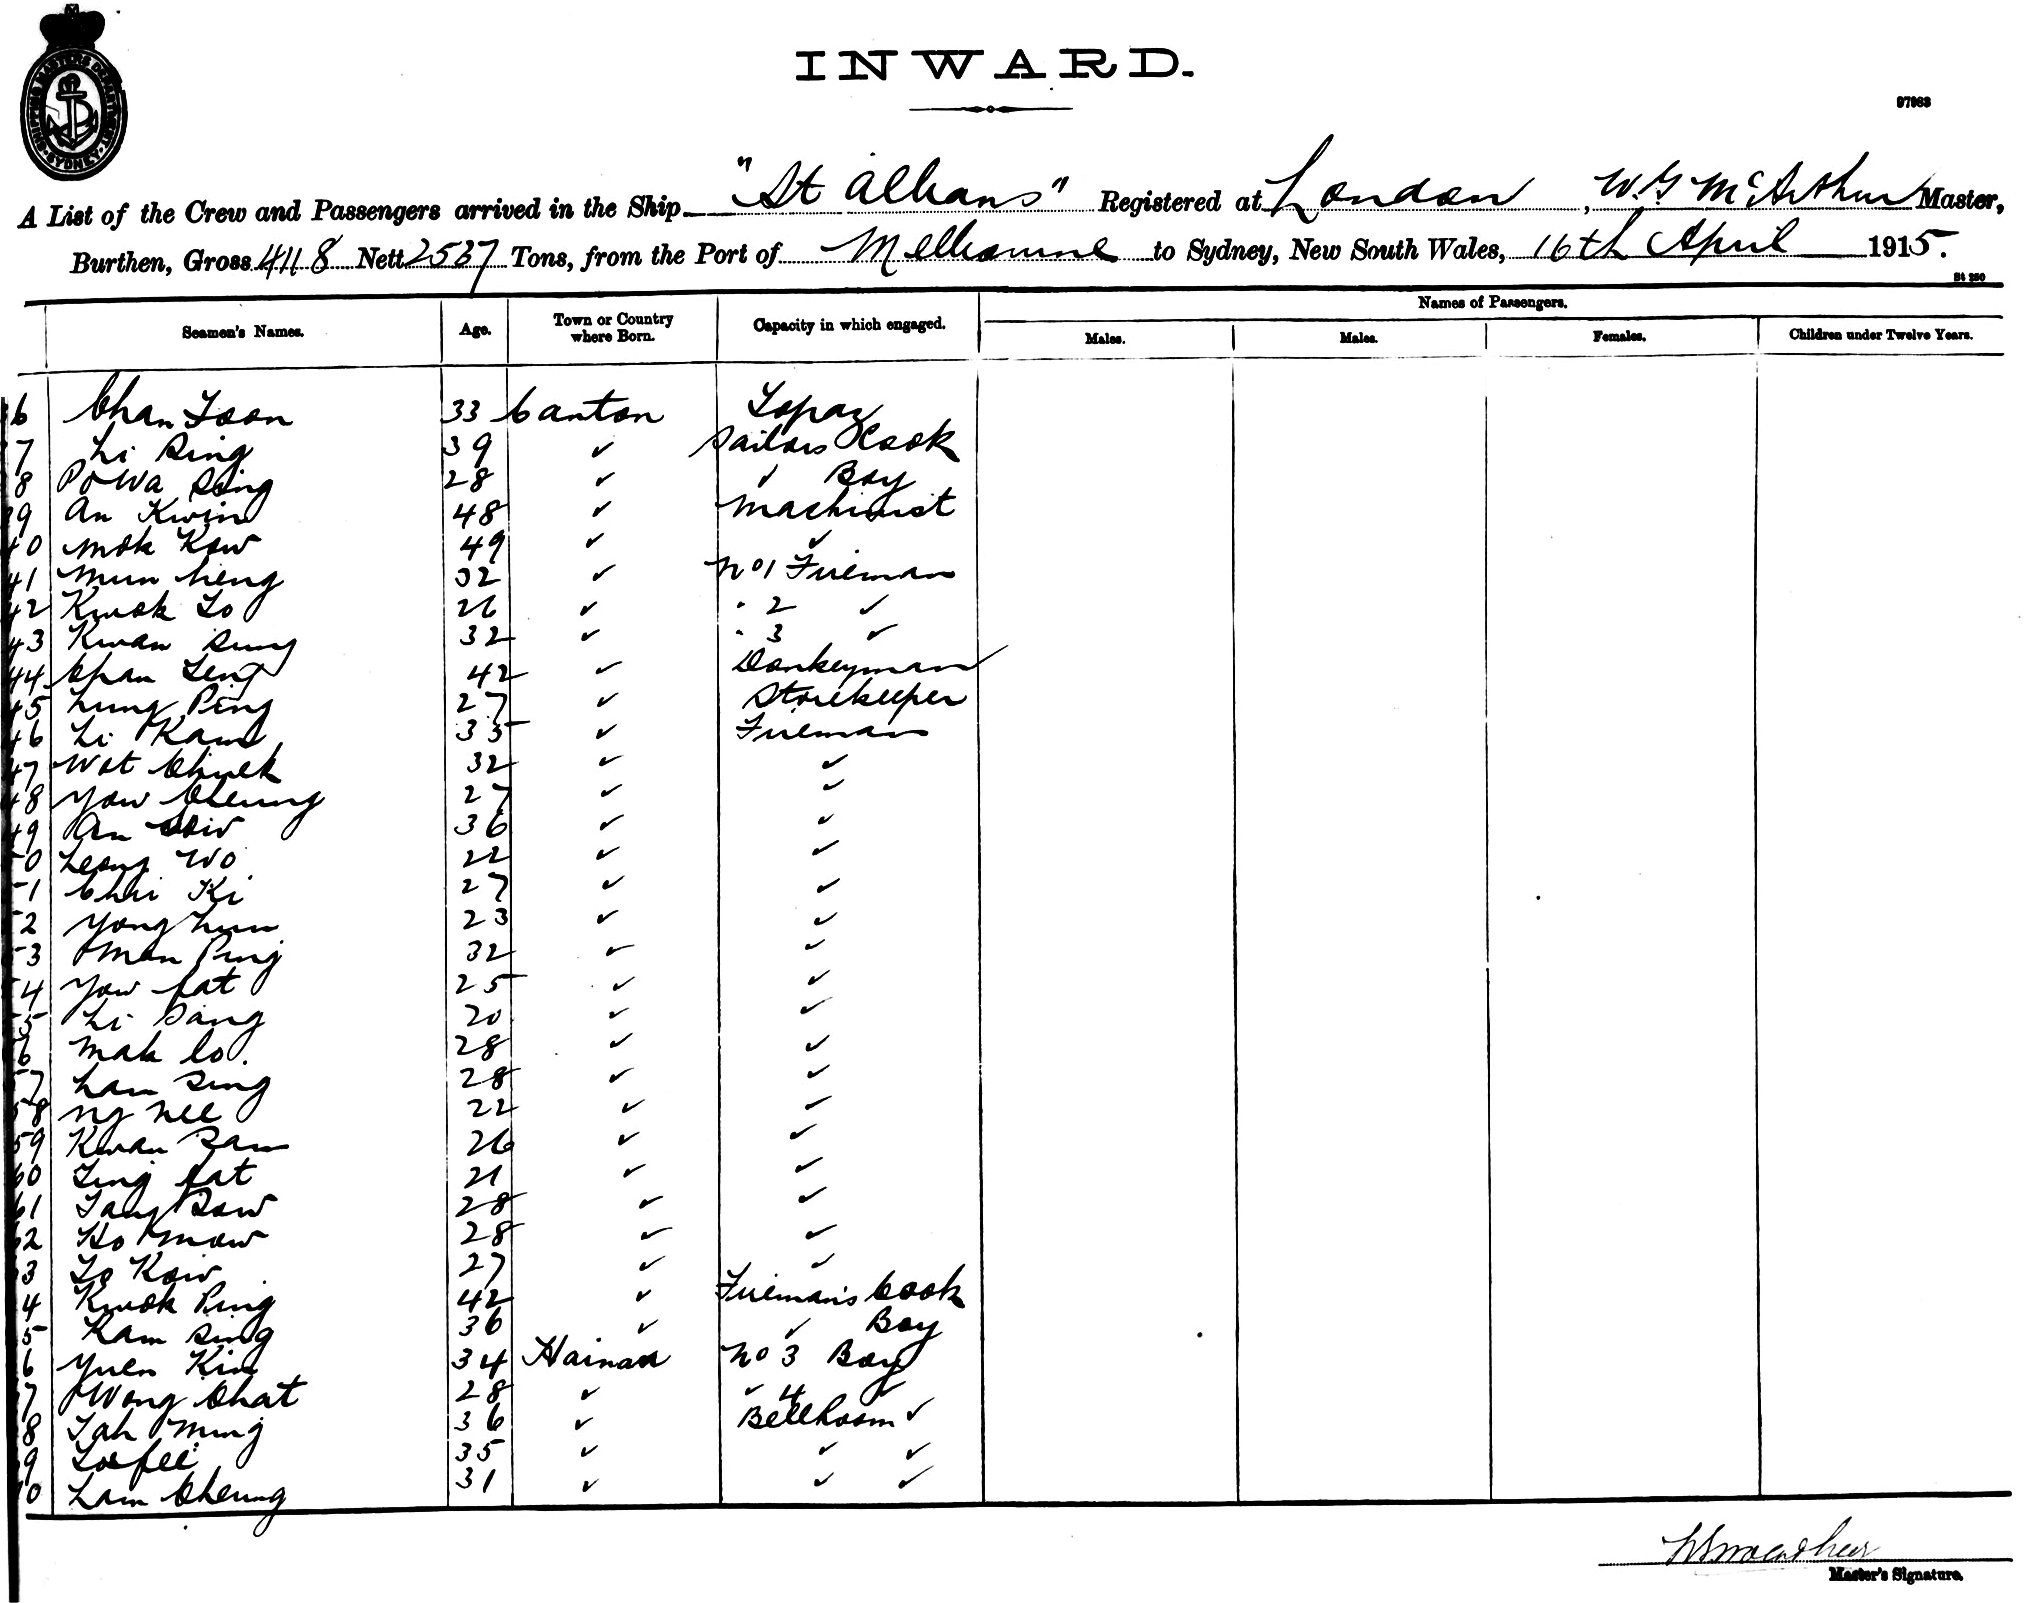 SHIPPING MASTERS DEPARTMENT SYDNEY
INWARD.
97963
A List of the Crew and Passengers arrived in the Ship "St Albans" Registered at London, W. G McArthur Master,
Burthen, Gross 4118 Nett 2537 Tons, from the Port of Melbourne to Sydney, New South Wales, 16th April 1915.
St 250
Names of Passengers.
Seamen's Names. Age. Town or Country where Born. Capacity in which engaged. Males. Males. Females. Children under Twelve Years.
36 Chan Foon 33 Canton Topaz
37 Li Sing 39 ✓ Sailors Cook
38 Po Wa Sing 28 ✓ ✓ Boy
39 An Kwin 48 ✓ Machinist
40 Mok Kow 49 ✓ ✓
41 Mun Heng 32 ✓ No 1 Fireman
42 Kwok To 26 ✓ " 2 ✓
43 Kwan Sung 32 ✓ " 3 ✓
44 Chan Leng 42 ✓ Donkeyman
45 Lung Ping 27 ✓ Storekeeper
46 Li Kam 35 ✓ Fireman
47 Wot Chuek 32 ✓ ✓
48 Yow Cheung 27 ✓ ✓
49 An 36 ✓ ✓
50 Leong Wo 22 ✓ ✓
51 Chui Ki 27 ✓ ✓
52 Yong Lun 23 ✓ ✓
53 Man Ping 32 ✓ ✓
54 Yow Fat 25 ✓ ✓
55 Li Sang 20 ✓ ✓
56 Mak Co. 28 ✓ ✓
57 Lam Sing 28 ✓ ✓
58 Ng Nee 22 ✓ ✓
59 Kwan Sam 26 ✓ ✓
60 Ting Fat 21 ✓ ✓
61 Tang Sow 28 ✓ ✓
62 Ho Mow 28 ✓ ✓
63 To Kow 27 ✓ ✓
64 Kwok Ping 42 ✓ Fireman's Cook
65 Kam Sing 36 ✓ ✓ Boy
66 Yuen Kin 34 Hainan No 3 Boy
67 Wong Chat 28 ✓ ✓ 4 ✓
68 Tah Ming 36 ✓ BellRoom ✓
69 Fee 35 ✓ ✓ ✓
70 Lam Cheung 31 ✓ ✓ ✓
Master's Signature.